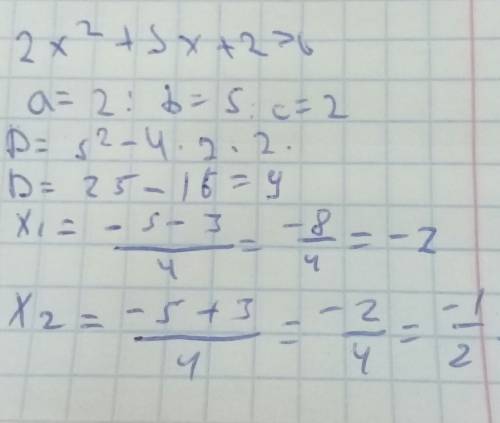 2x² + 5x + 2 > 0
a = 2 : b = 5 : c = 2
D = 5² - 4 · 2 · 2 ·
D = 25 - 16 = 9
x₁ = (-5 - 3)/4 = -8/4 = -2
x₂ = (-5 + 3)/4 = -2/4 = -1/2